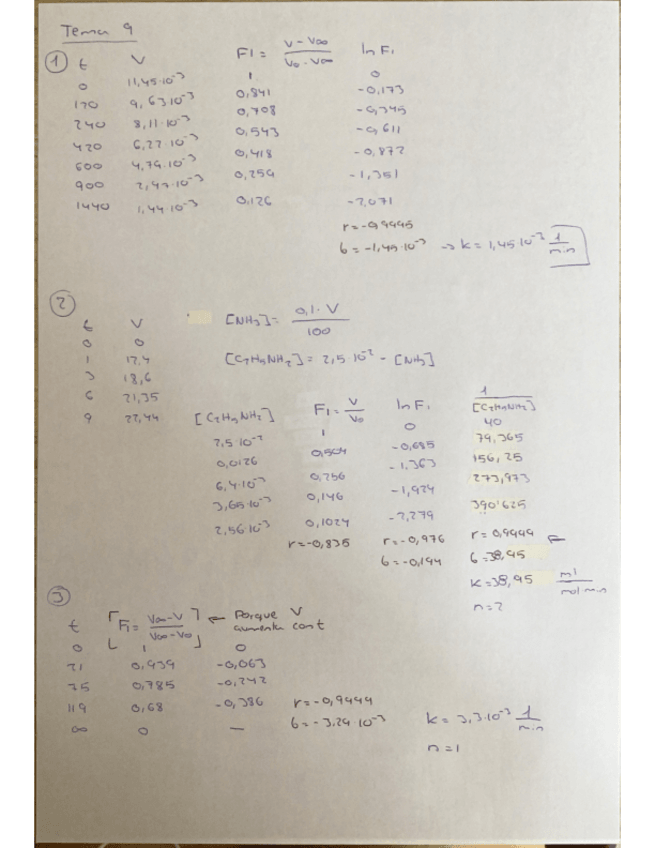 Tema 9
① t V F1 = (V - V∞)/(V0 - V∞) ln F1
0 11,45·10⁻³ 1 0
120 9,63·10⁻³ 0,841 -0,173
240 8,11·10⁻³ 0,708 -0,345
420 6,22·10⁻³ 0,543 -0,611
600 4,79·10⁻³ 0,418 -0,872
900 2,97·10⁻³ 0,259 -1,351
1440 1,44·10⁻³ 0,126 -2,071
r = -0,9995
b = -1,45·10⁻³ → k = 1,45·10⁻³ 1/min
② t V [NH3] = 0,1·V/100
0 0
1 12,4 [C2H4NH2] = 2,5·10⁻² - [NH3]
3 18,6
6 21,35
9 22,44
[C2H4NH2] F1 = V/V0 ln F1 1/[C2H4NH2]
2,5·10⁻² 1 0 40
0,0126 0,504 -0,685 79,365
6,4·10⁻³ 0,256 -1,363 156,25
3,65·10⁻³ 0,146 -1,924 273,973
2,56·10⁻³ 0,1024 -2,279 390'625
r = -0,835 r = -0,976 r = 0,9999 ←
b = -0,194 b = 38,95
k = 38,95 ml/mol min
n = 2
③
t [F1 = (V∞ - V)/(V∞ - V0)] ← Porque V aumenta con t
0 1 0
21 0,939 -0,063
75 0,785 -0,242
119 0,68 -0,386
∞ 0 —
r = -0,9999
b = -3,24·10⁻³ k = 3,3·10⁻³ 1/min
n = 1